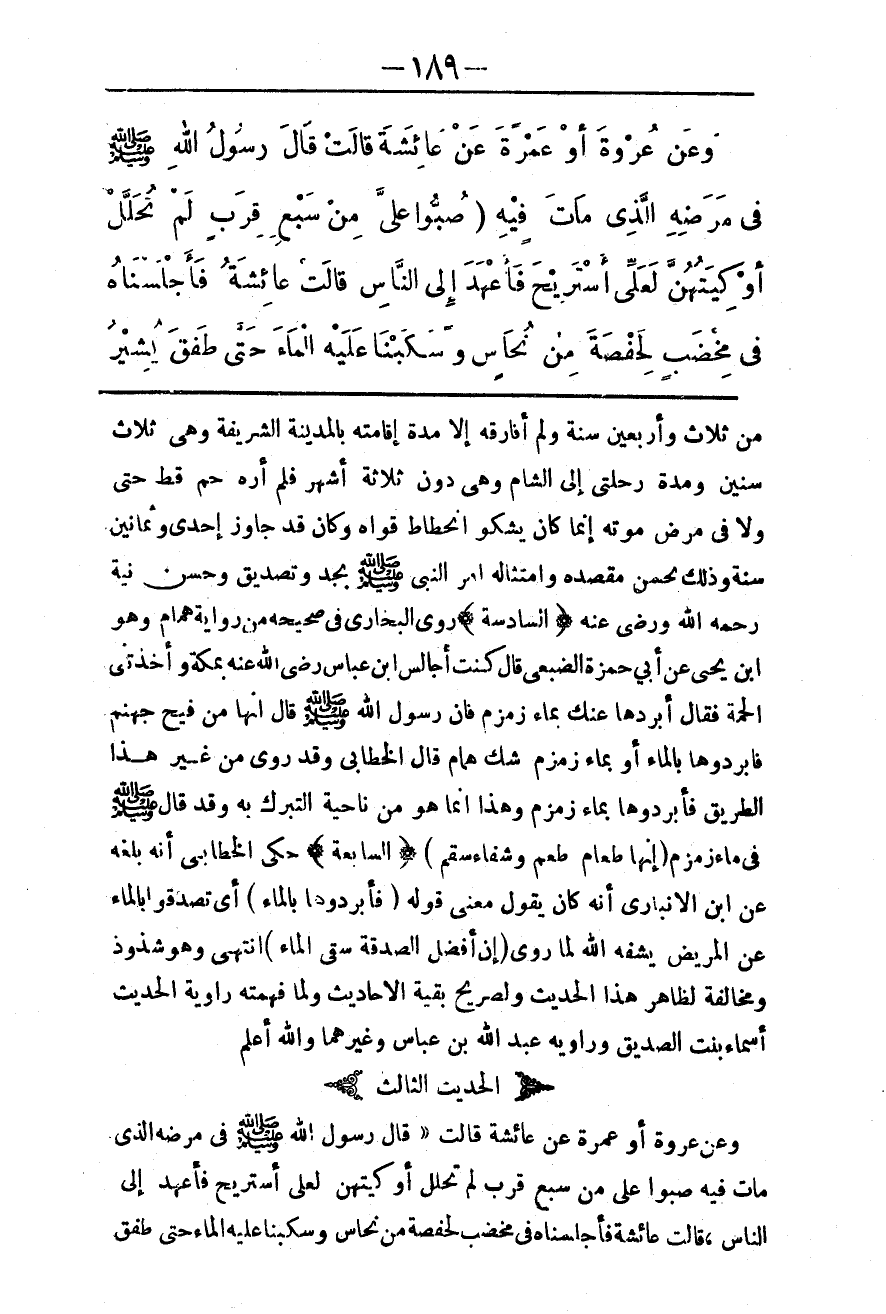 -١٨٩-
وَعَن عُرْوةَ أَوْ عَمْرَةَ عَنْ عَائِشَةَ قالَتْ قَالَ رسَولُ اللهِ ﷺ
فى مَرَضِهِ الَّذِى مَاتَ فِيْهِ ( صُبُّوا علىَّ مِنْ سَبْعِ قِرَبٍ لَمْ تُحَلَّلْ
أوْكِيَتُهُنَّ لَعَلِّى أَسْتَرِيْحَ فَأَعْهَدَ إِلى النَّاسِ قالَتْ عائِشَةُ فَأَجْلَسْنَاهُ
فى مِخْضَبٍ لِحَفْصَةَ مِنْ نُحَاسٍ وَسَكَبْنَا عَلَيْهِ الْمَاءَ حَتَّى طَفَقَ يُشِيْرُ
من ثلاث وأربعين سنة ولم أفارقه إلا مدة إقامته بالمدينة الشريفة وهى ثلاث
سنين ومدة رحلتى إلى الشام وهى دون ثلاثة أشهر فلم أره حم قط حتى
ولا فى مرض موته إنما كان يشكو انحطاط قواه وكان قد جاوز إحدى وثمانين
سنة وذلك بحسن مقصده وامتثاله امر النبى ﷺ بجد وتصديق وحسن نية
رحمه الله ورضى عنه ﴿ السادسة ﴾ روى البخارى فى صحيحه من رواية همام وهو
ابن يحيى عن أبي حمزة الضبعى قال كنت أجالس ابن عباس رضى الله عنه بمكة وأخذتنى
الحمة فقال أبردها عنك بماء زمزم فان رسول الله ﷺ قال انها من فيح جهنم
فابردوها بالماء أو بماء زمزم شك همام قال الخطابى وقد روى من غير هذا
الطريق فأبردوها بماء زمزم وهذا انما هو من ناحية التبرك به وقد قال ﷺ
فى ماء زمزم (إنها طعام طعم وشفاء سقم ) ﴿ السابعة ﴾ حكى الخطابى أنه بلغه
عن ابن الانبارى أنه كان يقول معنى قوله ( فأبردوها بالماء ) أى تصدقوا بالماء
عن المريض يشفه الله لما روى (إن أفضل الصدقة سقى الماء )انتهى وهو شذوذ
ومخالفة لظاهر هذا الحديث ولصريح بقية الاحاديث ولما فهمته راوية الحديث
أسماء بنت الصديق وراويه عبد الله بن عباس وغيرهما والله أعلم
الحديث الثالث
وعن عروة أو عمرة عن عائشة قالت « قال رسول الله ﷺ فى مرضه الذى
مات فيه صبوا على من سبع قرب لم تحلل أوكيتهن لعلى أستريح فأعهد إلى
الناس ، قالت عائشة فأجلسناه فى مخضب لحفصة من نحاس وسكبنا عليه الماء حتى طفق